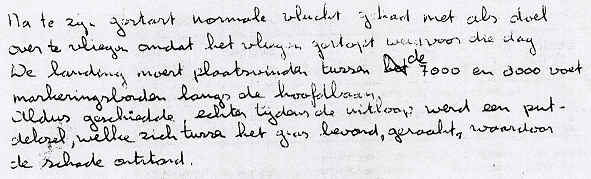 Na te zijn gestart normale vlucht gehad met als doel
over te vliegen omdat het vliegen gestopt werd voor die dag
De landing moest plaatsvinden tussen de 7000 en 8000 voet
markeringsborden langs de hoofdbaan.
Aldus geschiedde, echter tijdens de uitloop werd een put-
deksel, welke zich tussen het gras bevond, geraakt, waardoor
de schade ontstond.